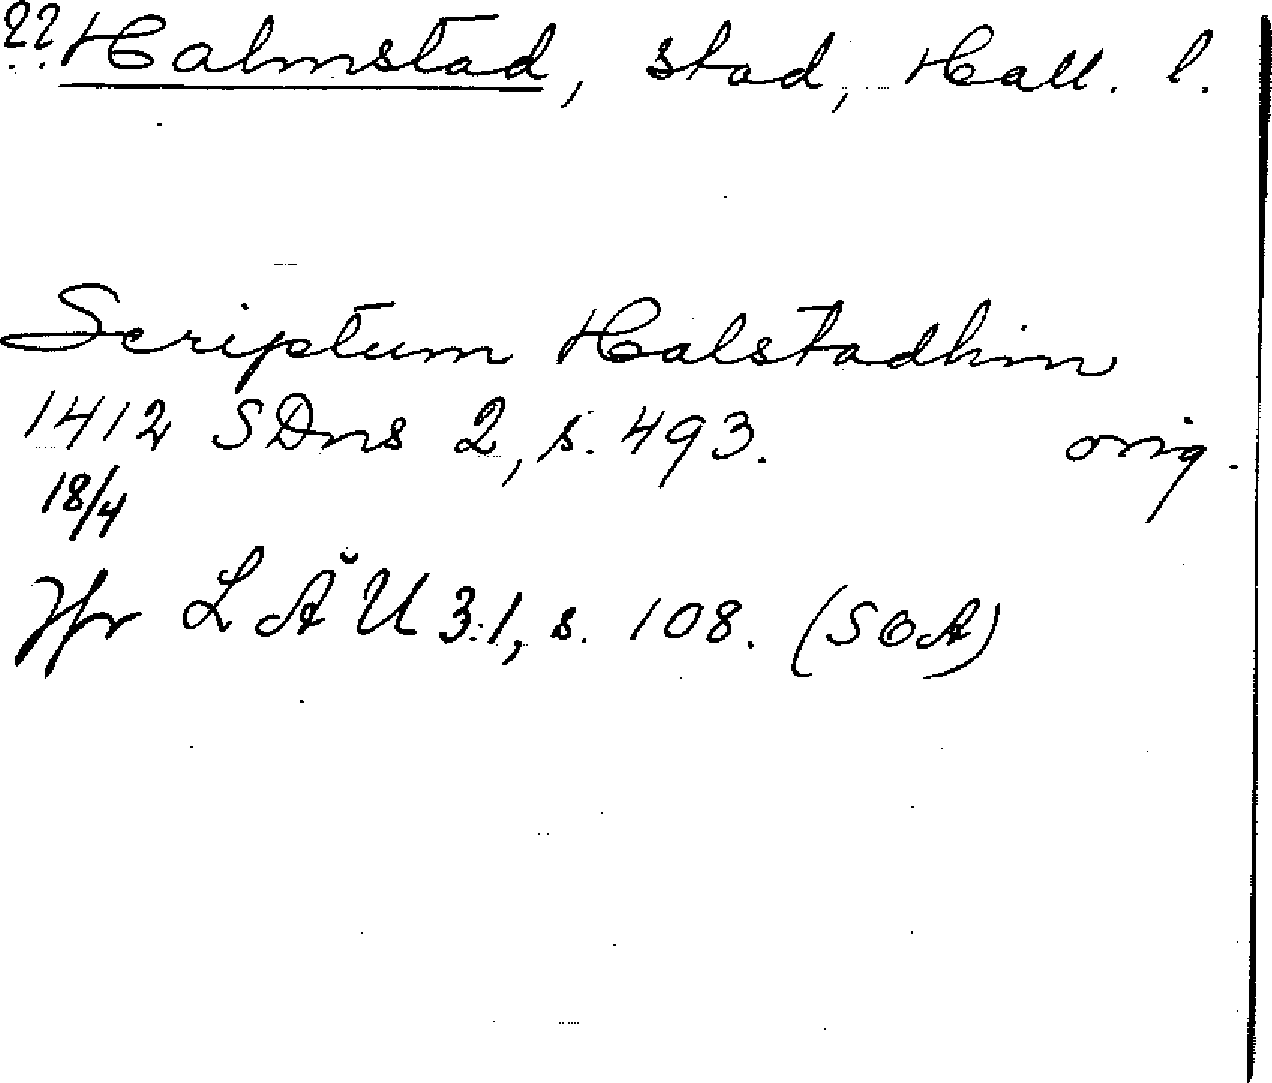 ?? Halmstad, stad, Hall. l.
Scriptum Halstadhim
1412 SDns 2, s. 493. orig.
18/4
Jfr LÄU 3:1, s. 108. (SOA)